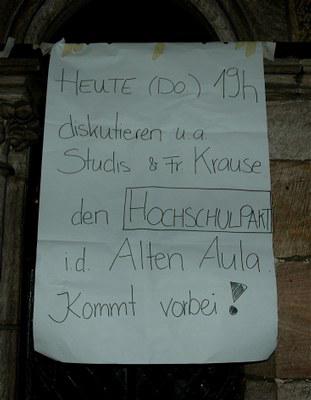 HEUTE (DO) 19h
diskutieren u.a.
Studis & Fr Krause
den HOCHSCHULPAKT
i.d. Alten Aula.
Kommt vorbei!